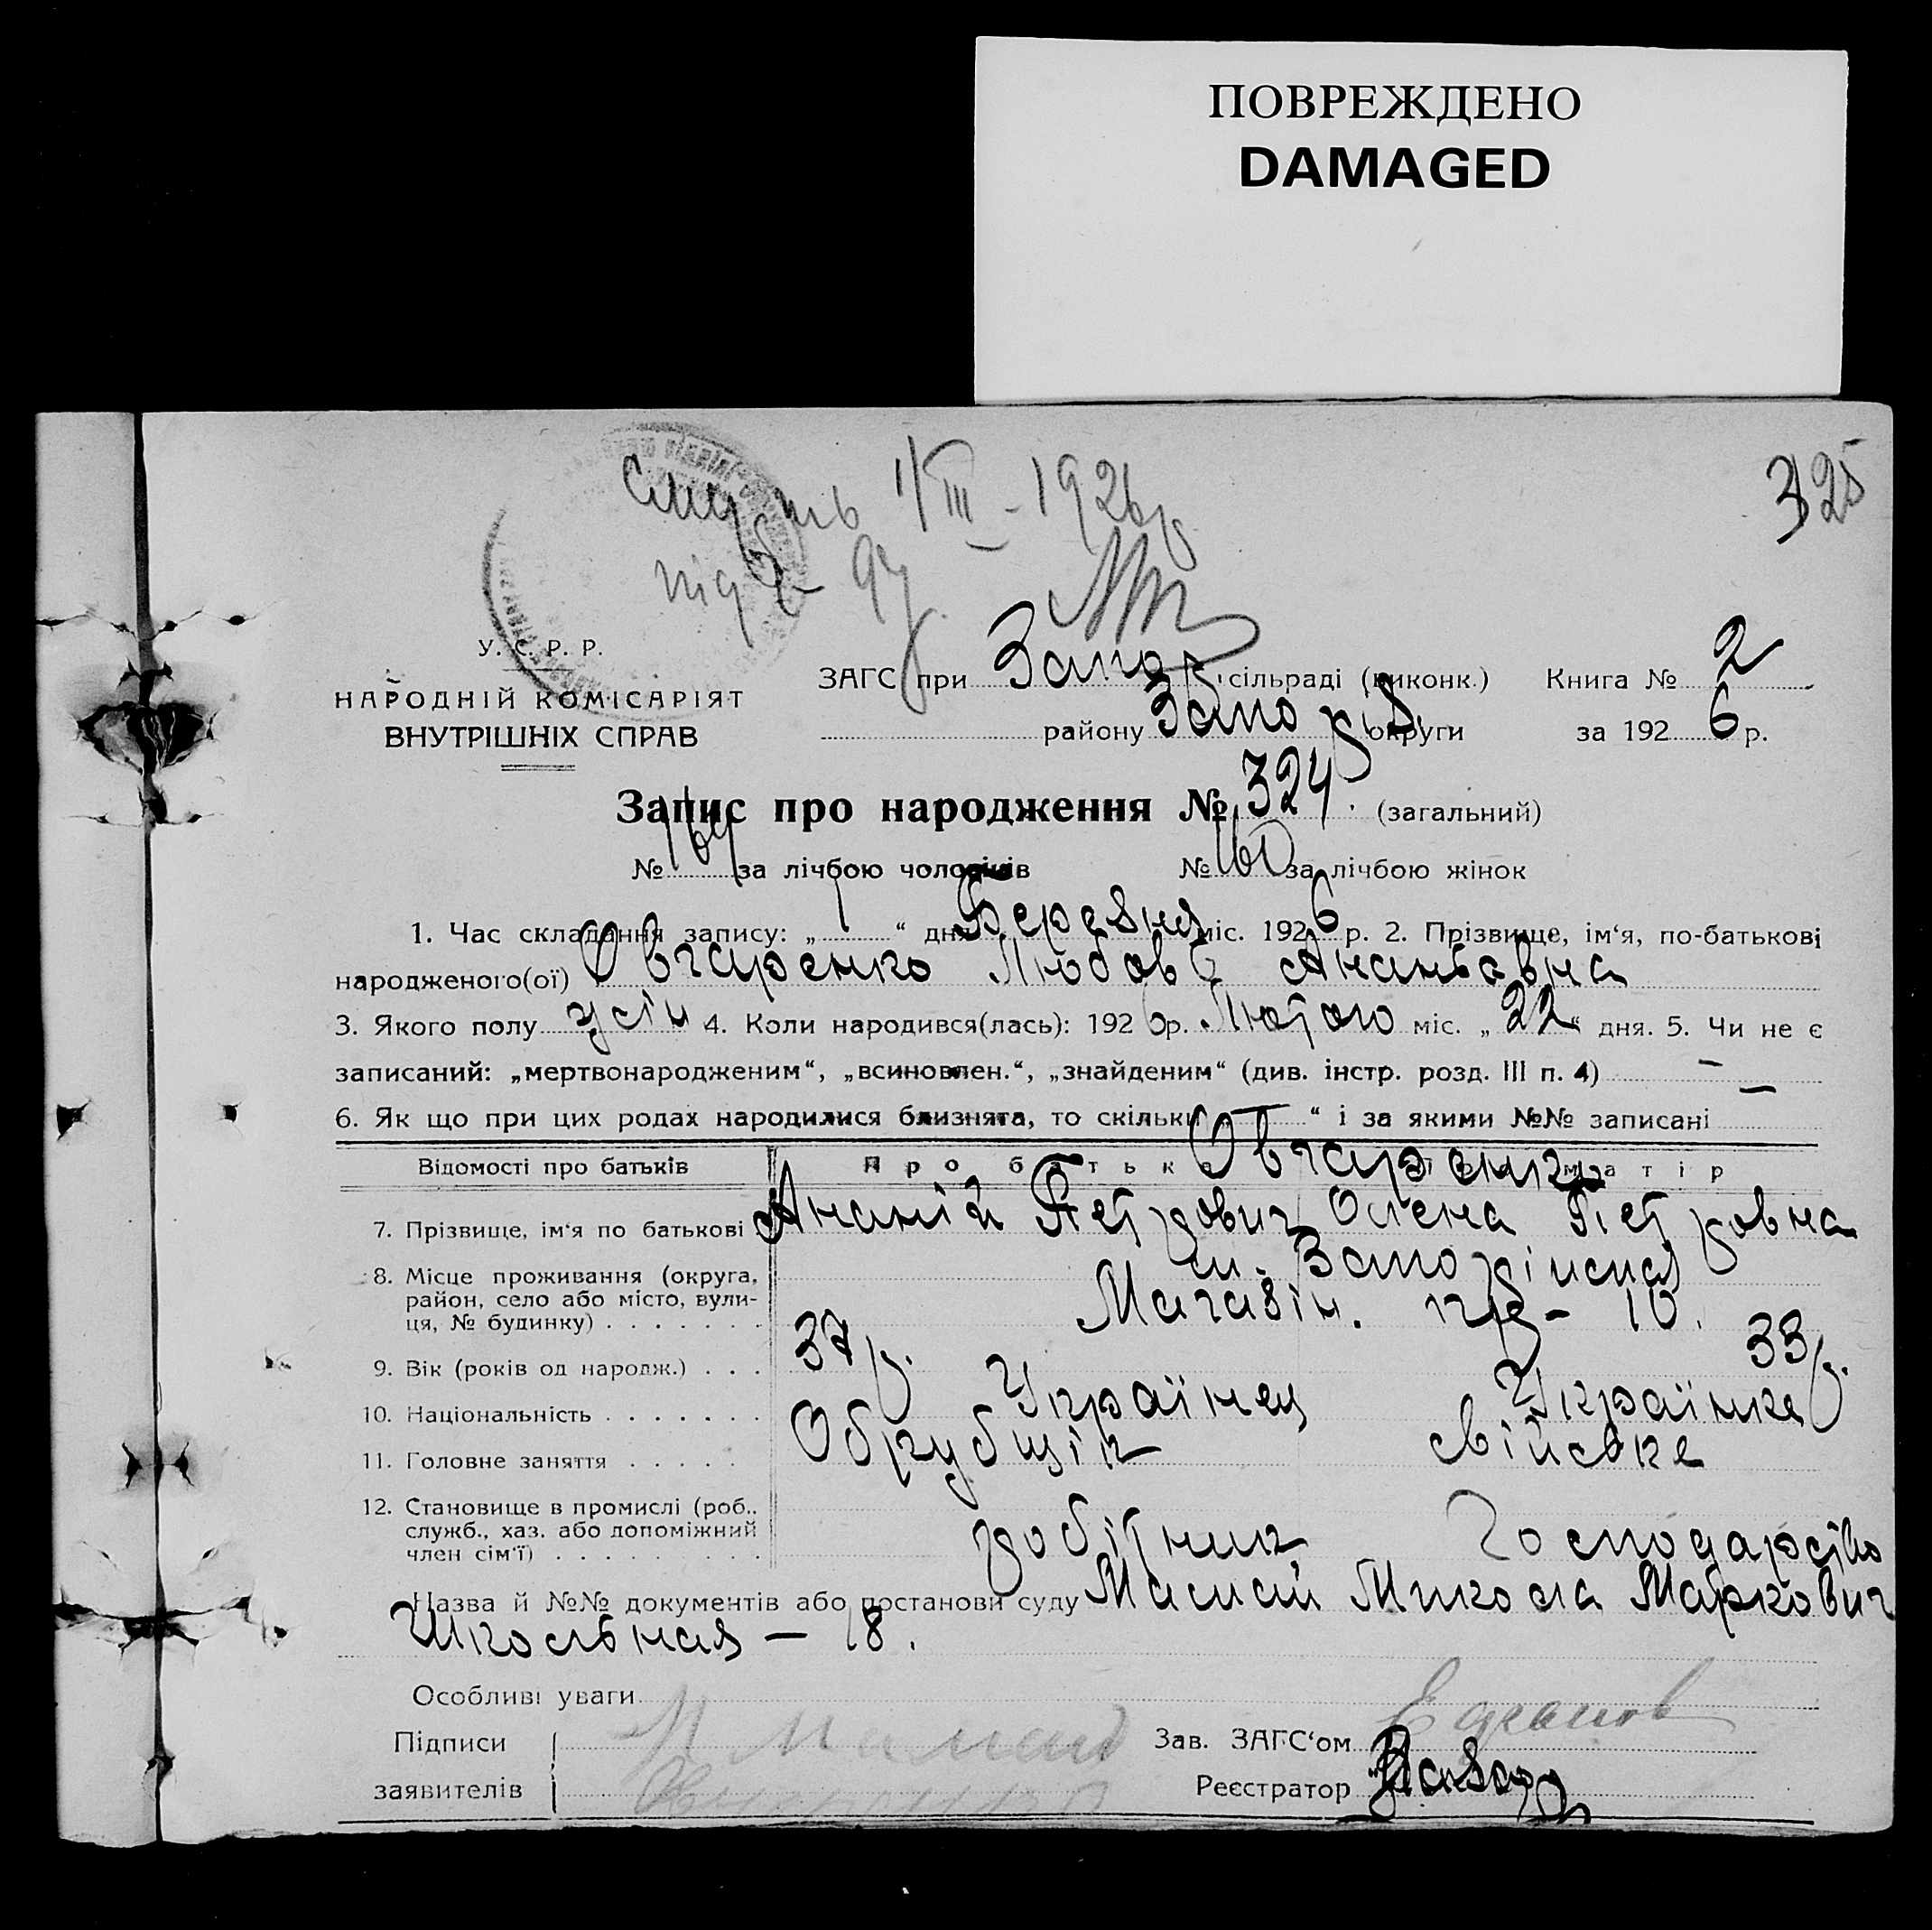 ПОВРЕЖДЕНО
DAMAGED
325
Смерть 1/III - 1926р.
під № 97.
У. С. Р. Р.
НАРОДНІЙ КОМІСАРІЯТ
ВНУТРІШНІХ СПРАВ
ЗАГС при Запор. сільраді (виконк.) Книга № 2
району Запоріз округи за 1926 р.
Запис про народження № 324. (загальний)
№ 164 за лічбою чоловіків № 160 за лічбою жінок
1. Час складання запису: „ 1 “ дня Березня міс. 1926 р. 2. Прізвище, ім‘я, по-батькові
народженого(ої) Овчаренко Любовь Ананьевна
3. Якого полу 4. Коли народився(лась): 1926 р. Лютого міс. „ 22 “ дня. 5. Чи не є
записаний: „мертвонародженим“, „всиновлен.“, „знайденим“ (див. інстр. розд. III п. 4) —
6. Як що при цих родах народилися близнята, то скільки „ — “ і за якими №№ записані —
Відомості про батьків Про батька Про матір
Овчаренки
7. Прізвище, ім‘я по батькові Ананій Петрович Олена Петровна
8. Місце проживання (округа, район, село або місто, вули-
ця, № будинку) . . . . . . . м. Запоріжжя
Магазін. - 10.
9. Вік (років од народж.) . . . 37 р. 33 р.
10. Національність . . . . . . . Українец Українка
11. Головне заняття . . . . . Обрубщік
12. Становище в промислі (роб.,
служб., хаз. або допоміжний
член сім‘ї) . . . . . . . . . робітник Господарство
Назва й №№ документів або постанови суду Мамай Микола Маркович
Школьная — 18.
Особливі уваги
Підписи М Мамай Зав. ЗАГС‘ом
заявителів Реєстратор